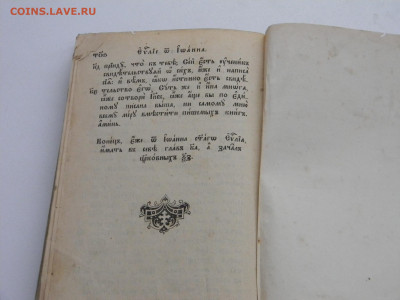 COINS.LAVE.RU
Еѵⷢ҇лїе ѿ І҆ѡа́нна.
к҃д прїидꙋ̀, что̀ къ тебѣ̀; Се́й є҆́сть ᲂу҆чени́къ
свидѣ́тельствꙋѧй ѡ҆ си́хъ, и҆́же и҆ написа̀
сїѧ̑: и҆ вѣ́мы, ꙗ҆́кѡ и҆́стинно є҆́сть свидѣ́-
к҃є тельство є҆гѡ̀. Сꙋ́ть же и҆ и҆́на мнѡ́га,
ꙗ҆̀же сотворѝ І҆и҃съ, ꙗ҆̀же а҆́ще бы по є҆ди́-
номꙋ пи̑сана бы́ша, ни самомꙋ̀ мню̀
всемꙋ̀ мі́рꙋ вмѣсти́ти пи́шемыхъ кни́гъ.
а҆ми́нь.
Коне́цъ, є҆́же ѿ І҆ѡа́нна ст҃а́гѡ є҆ѵⷢ҇лїа,
и҆́мать въ себѣ̀ гла́въ к҃а, а҆ зача́лъ
цр҃ко́вныхъ ѯ҃з.